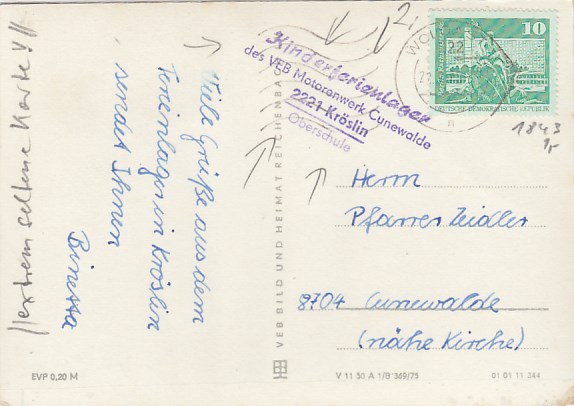 Viele Grüße aus dem
Ferienlager in Kröslin
sendet Ihnen
//extrem seltene Karte!//
Kinderferienlager
des VEB Motorenwerk Cunewalde
2221 Kröslin
Oberschule
2,
10
DEUTSCHE DEMOKRATISCHE REPUBLIK
1843
VEB BILD UND HEIMAT REICHENBACH
Herrn
Pfarrer Zeidler
8704 Cunewalde
(nähe Kirche)
EVP 0,20 M
V 11 50 A 1/B 369/75
01 01 11 344